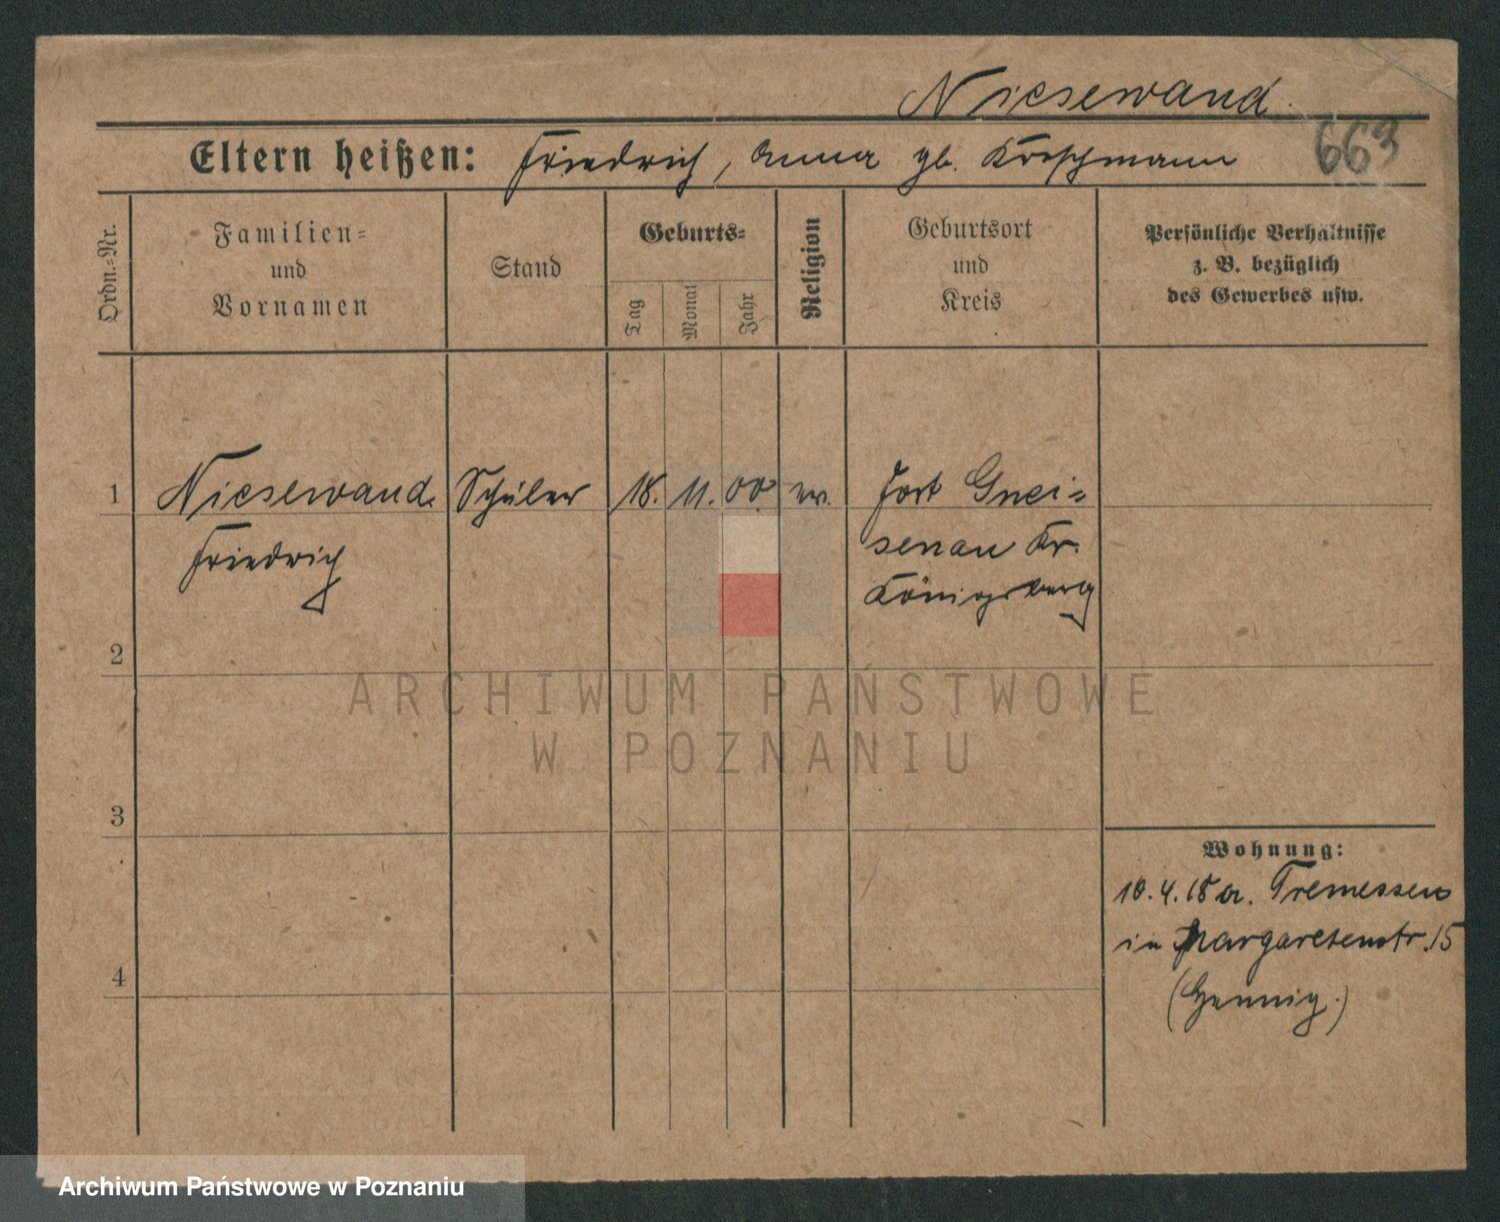 Niesewand.
663
Eltern heißen: Friedrich, Anna gb. Kroschmann
Ordn.-Nr.
Familien-
und
Vornamen
Stand
Geburts-
Tag
Monat
Jahr
Religion
Geburtsort
und
Kreis
Persönliche Verhältnisse
z. B. bezüglich
des Gewerbes usw.
1 Niesewand. Schüler 18. 11. 00. ev. Fort Gnei-
Friedrich senau Kr.
Königsberg
2
3
4
Wohnung:
10.4.18 a. Tremessen
in Margaretenstr. 15
(Hennig.)
ARCHIWUM PAŃSTWOWE
W POZNANIU
Archiwum Państwowe w Poznaniu